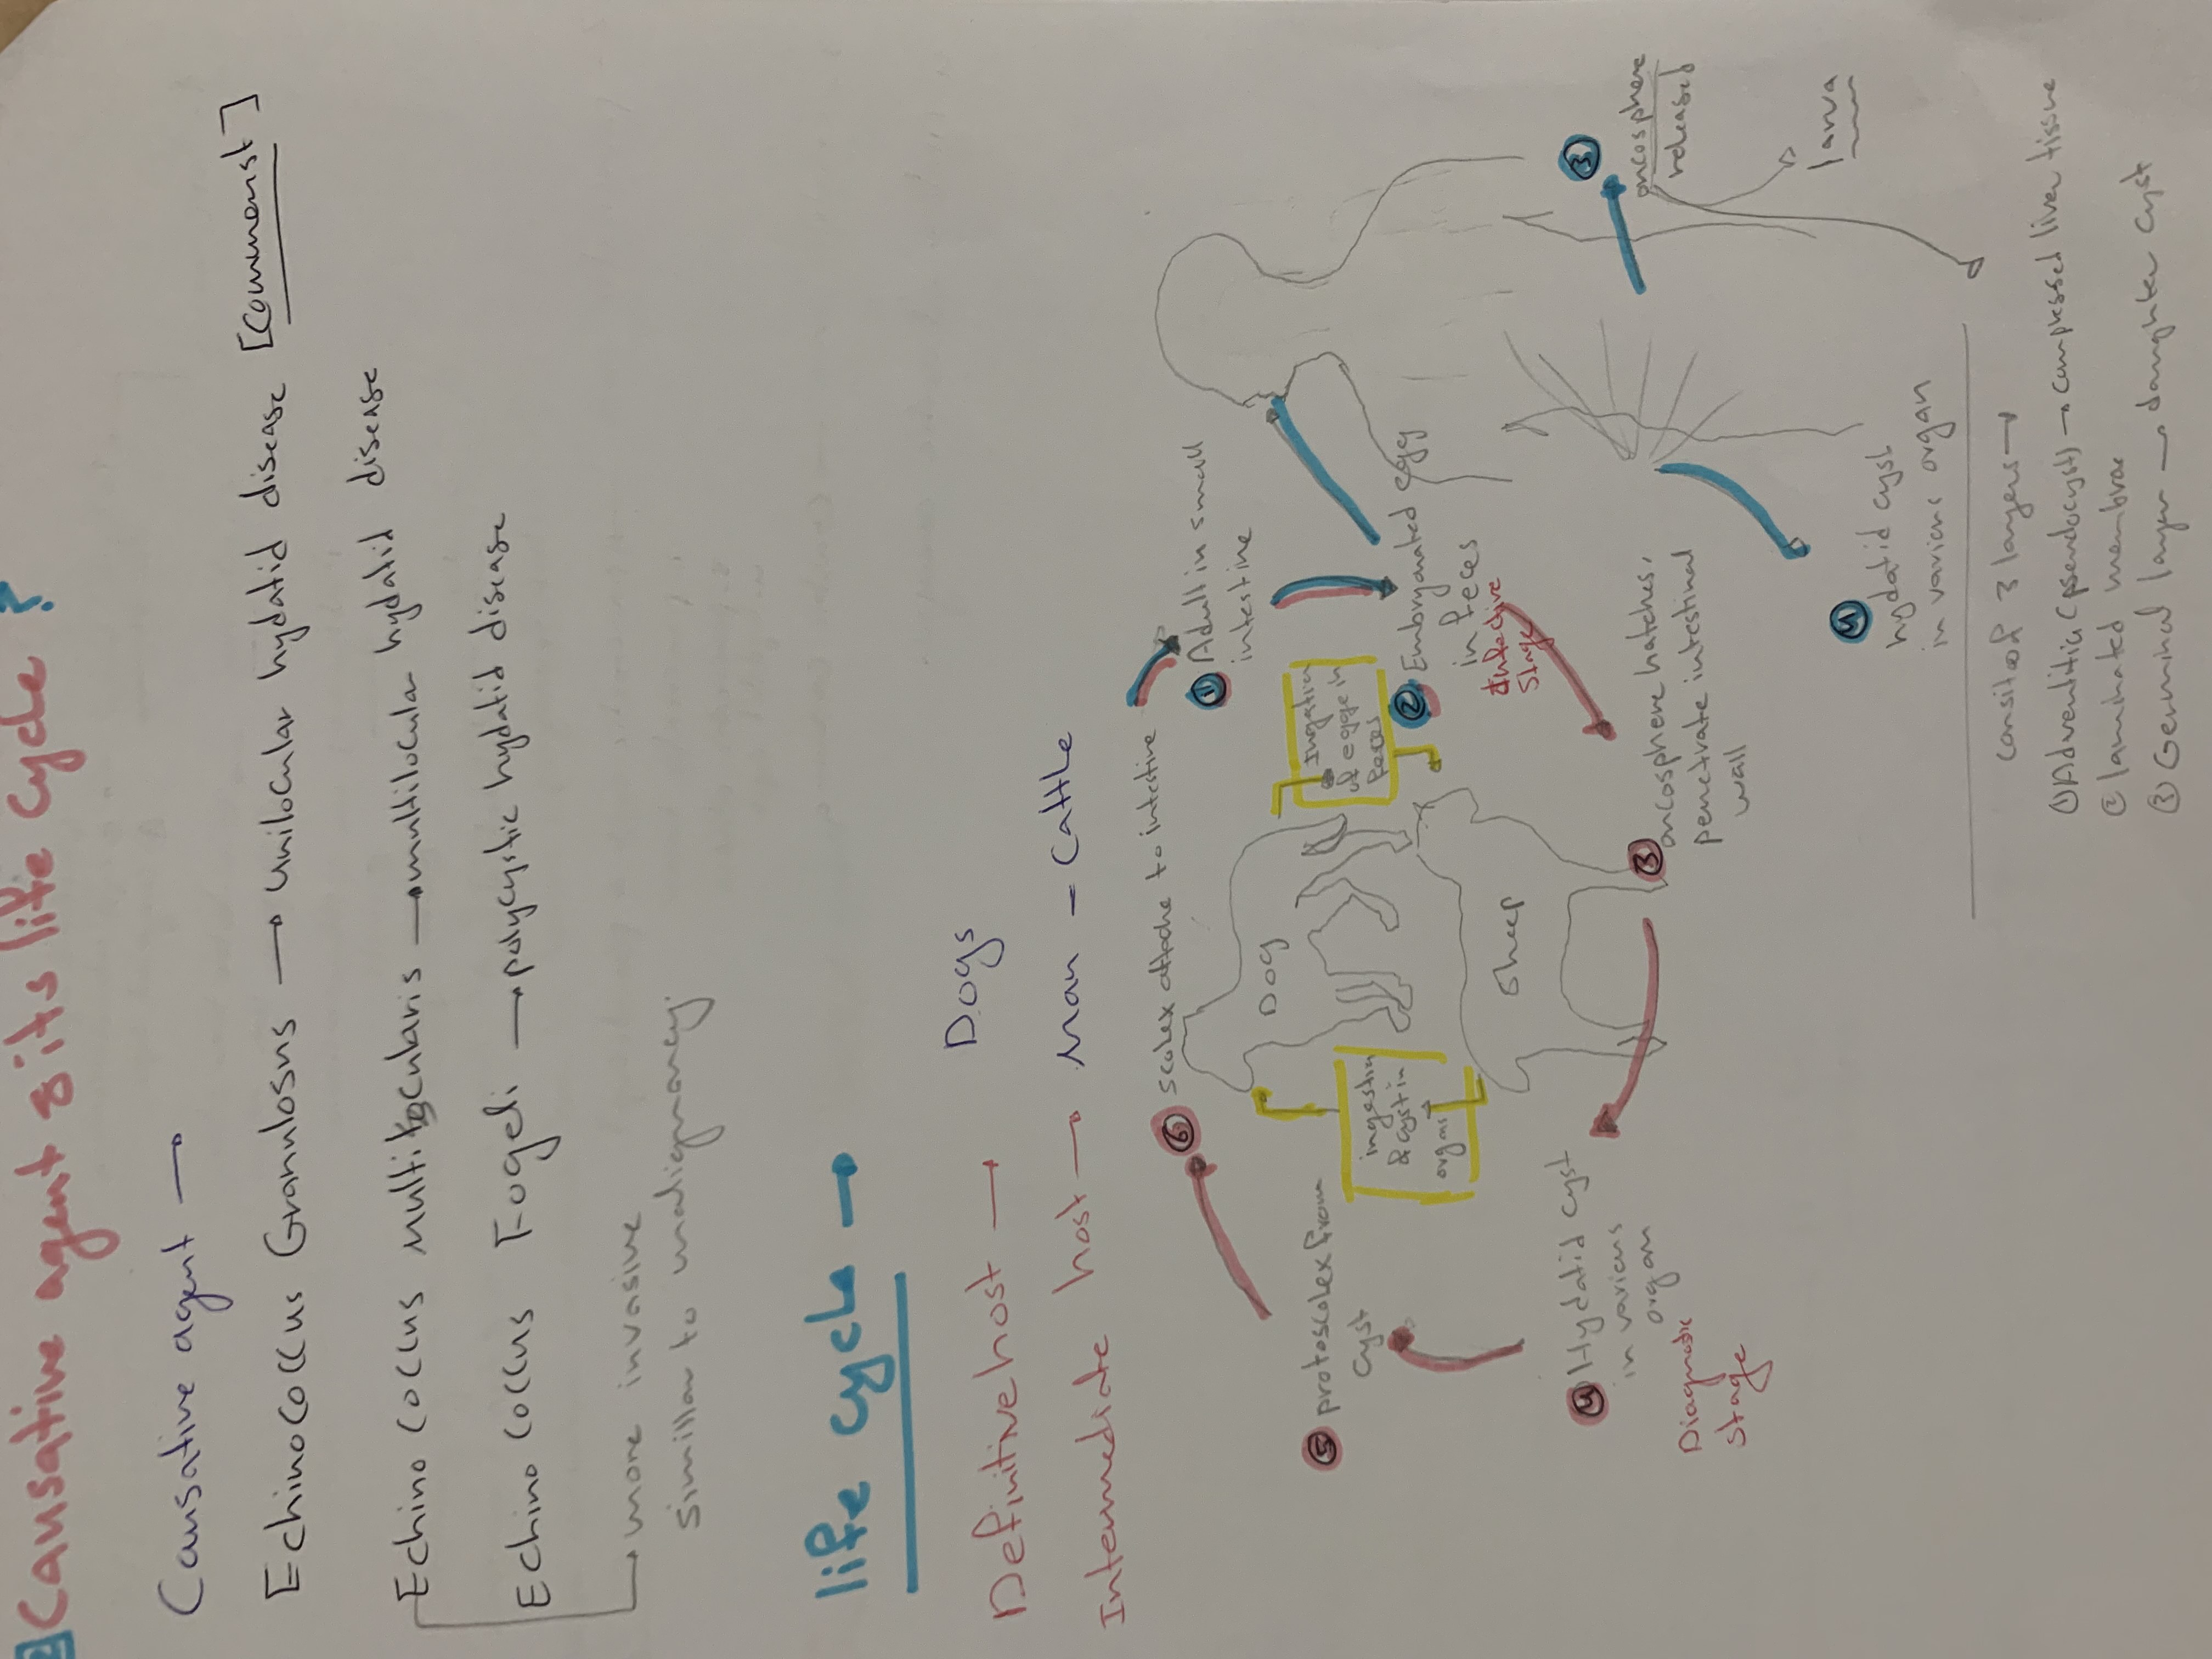 Causative agent & its life cycle ?
Causative agent →
Echinococcus Granulosus → unilocular hydatid disease [Commenst]
Echino coccus multilocularis → multilocular hydatid disease
Echino coccus Fogeli → polycystic hydatid disease
more invasive
similar to malignancy
life cycle →
Definitive host → Dogs
Intermediate host → man - Cattle
⑥ scolex attache to intestine
① Adult in small
intestine
Ingestion
of eggs in
feces
② Embryonated egg
in feces
Infective
Stage
③ oncosphere hatches,
penetrate intestinal
wall
Dog
Sheep
ingestion
& cyst in
organs
⑤ protoscolex from
cyst
④ Hydatid cyst
in various
organ
Diagnostic
Stage
③ oncosphere
released
larva
④ hydatid cyst
in various organ
consit of 3 layers →
① Adventitia (pseudocyst) → compressed liver tissue
② laminated membrae
③ Germinal layer → daughter cyst